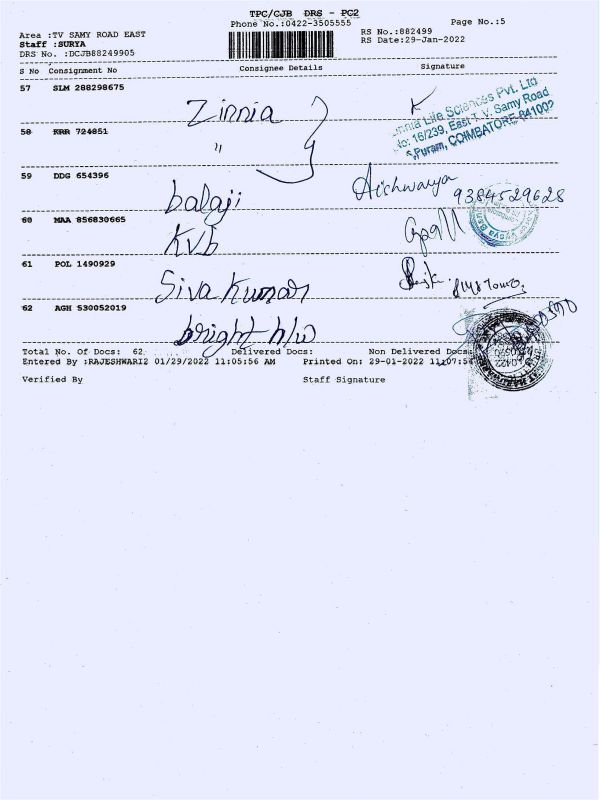 TPC/CJB DRS - PC2
Phone No.:0422-3505555
Page No.:5
Area :TV SAMY ROAD EAST
RS No.:882499
Staff :SURYA
RS Date:29-Jan-2022
DRS No. :DCJB88249905
S No Consignment No Consignee Details Signature
57 SLM 288298675
Zinnia
Zinnia Life Sciences Pvt. Ltd
No: 16/239, East T.V. Samy Road
S.Puram, COIMBATORE-641002
58 KRR 724851
"
59 DDG 654396
balaji Aishwarya
9384529628
60 MAA 856830665
KVB
61 POL 1490929
Siva Kumar
62 AGH 530052019
bright h/w
Total No. Of Docs: 62 Delivered Docs: Non Delivered Docs:
Entered By :RAJESHWARI2 01/29/2022 11:05:56 AM Printed On: 29-01-2022 11:07:54
Verified By Staff Signature